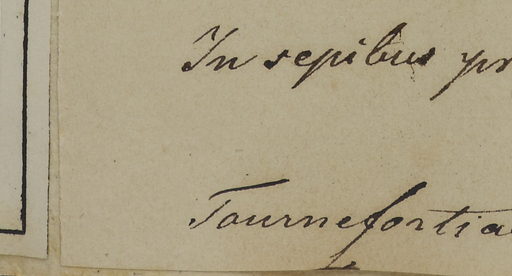 In sepibus pr
Tournefortia